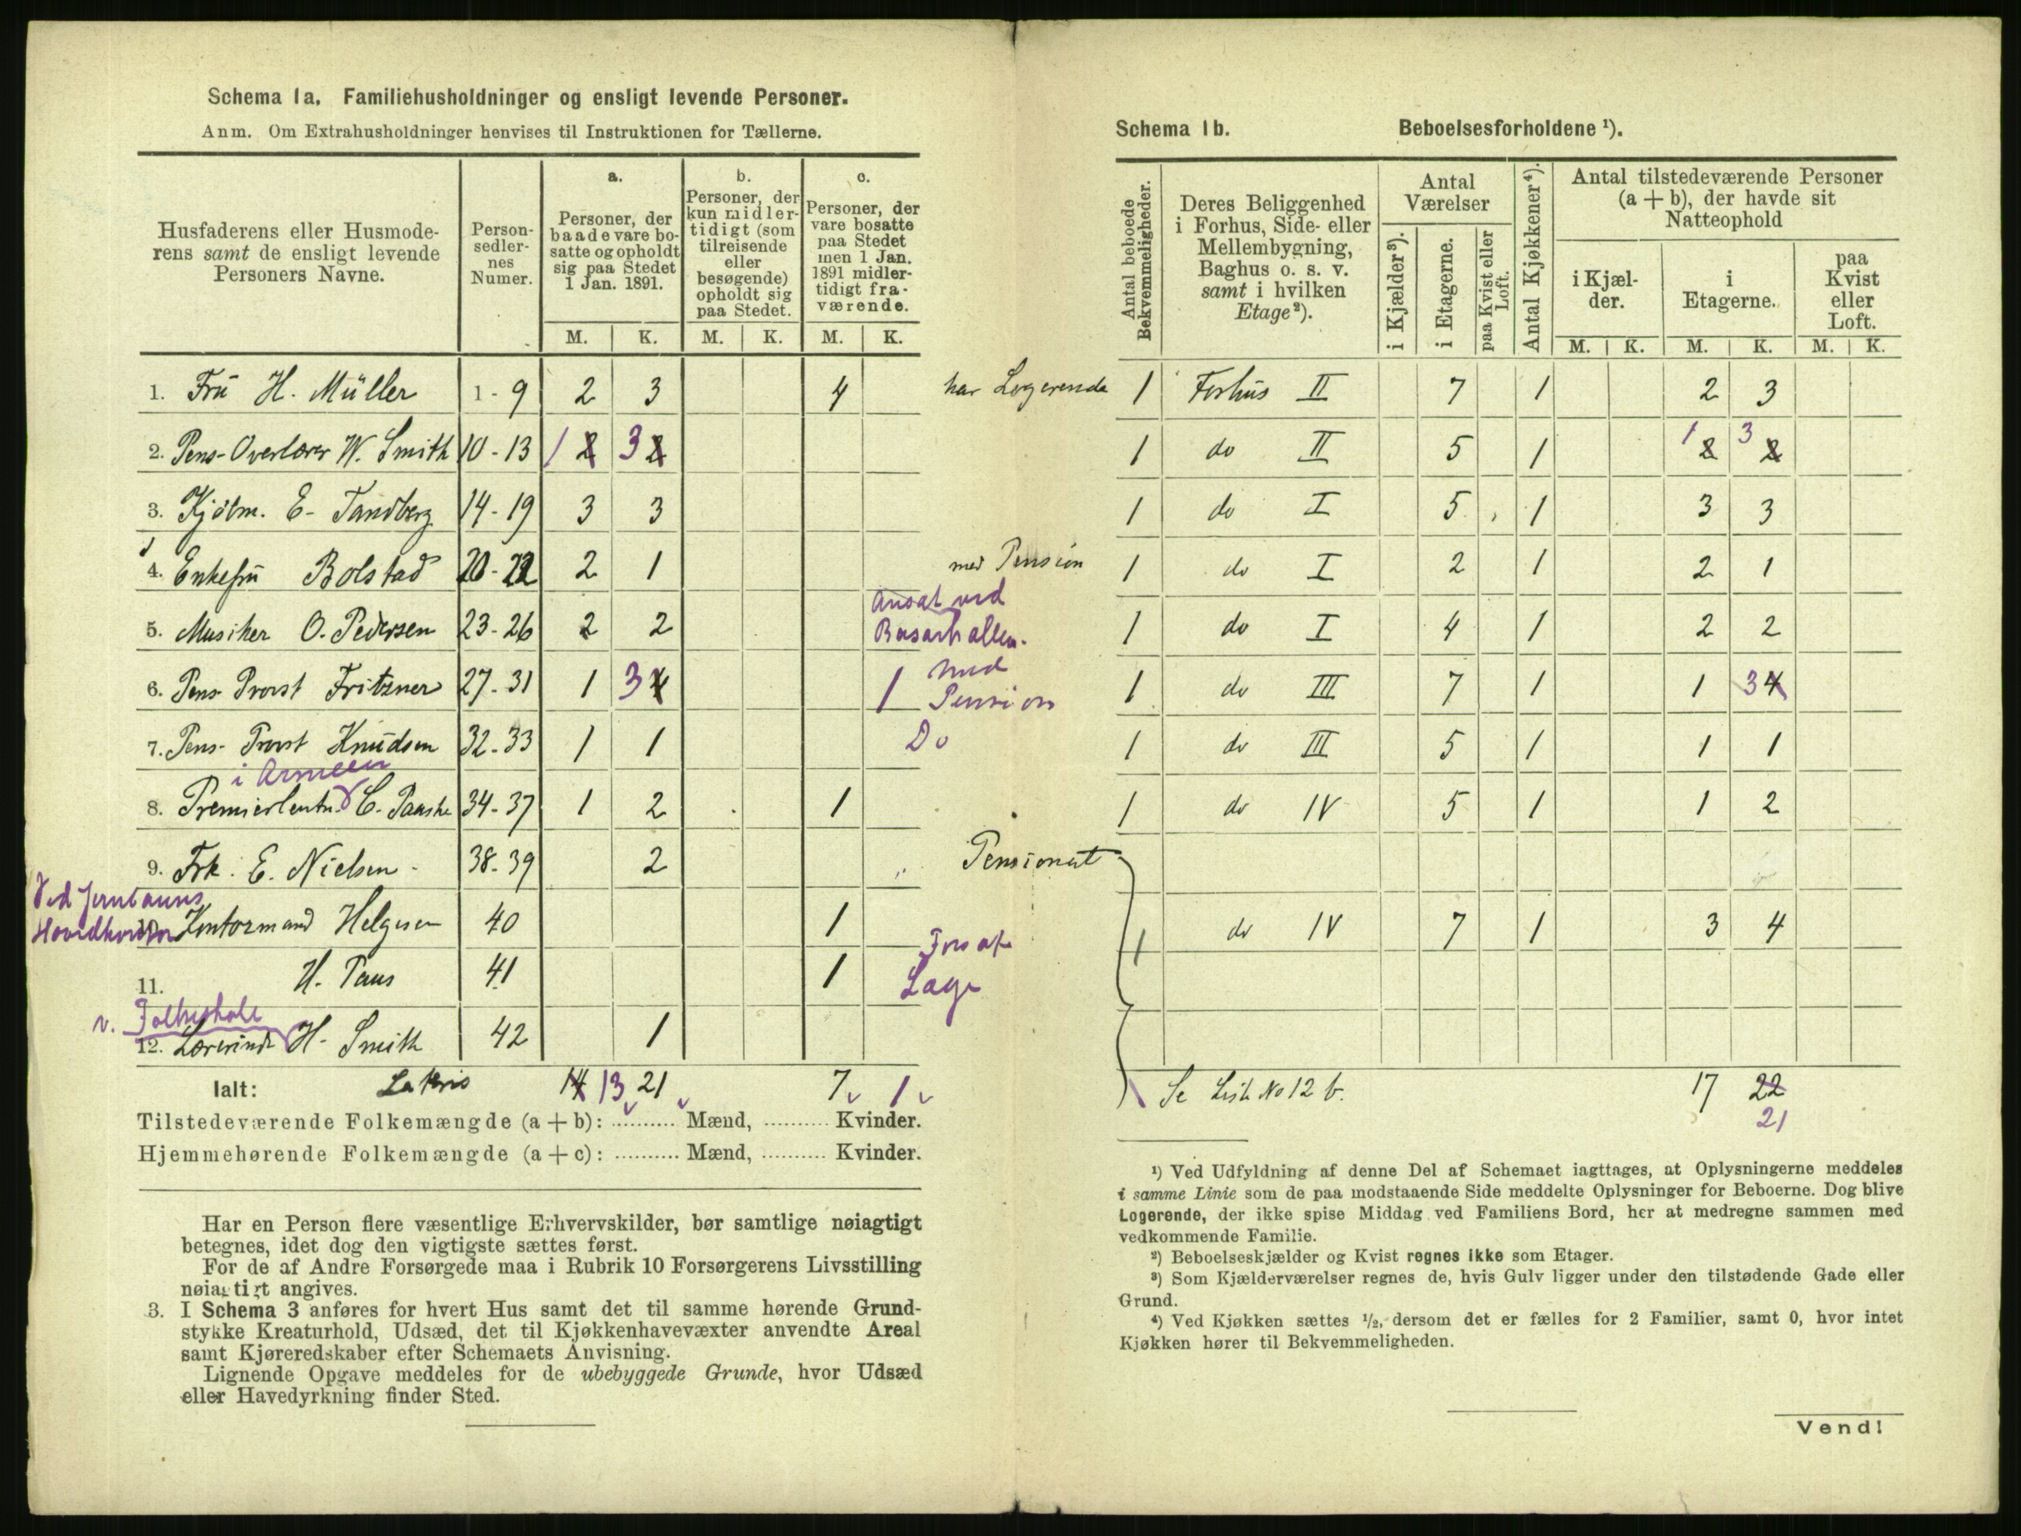 Schema 1a. Familiehusholdninger og ensligt levende Personer.
Anm. Om Extrahusholdninger henvises til Instruktionen for Tællerne.
Husfaderens eller Husmoderens samt de ensligt levende Personers Navne.
Person-sedler-nes Numer.
a. Personer, der baade vare bosatte og opholdt sig paa Stedet 1 Jan. 1891.
b. Personer, der kun midlertidigt (som tilreisende eller besøgende) opholdt sig paa Stedet.
c. Personer, der vare bosatte paa Stedet men 1 Jan. 1891 midlertidigt fraværende.
M. K. M. K. M. K.
1. Frü H. Müller 1 - 9 2 3 4 har Logerende
2. Pens- Overlærer W. Smith 10 - 13 1 2 3 2
3. Kjøbm. E- Tandberg 14 - 19 3 3
4. Enkefrü Bolstad 20 - 22 2 1 med Pension
5. Musiker O. Pedersen 23 - 26 2 2 Ansat ved Basarhallen.
6. Pens- Provst Fritzner 27 - 31 1 3 4 1 med Pension
7. Pens- Provst Knudsen 32 - 33 1 1 Do
i Armeen
8. Premierlentn. C. Paaske 34 - 37 1 2 1
9. Frk. E. Nielsen - 38 - 39 2 Pensionat
Ved Jernbanens
10. Kontormand Helgesen 40 1
11. H. Paus 41 1 Lage
v. Folkeskole
12. Lærerinde H. Smith 42 1
Ialt: 14 13 21 7 1
Tilstedeværende Folkemængde (a + b): Mænd, Kvinder.
Hjemmehørende Folkemængde (a + c): Mænd, Kvinder.
Har en Person flere væsentlige Erhvervskilder, bør samtlige nøiagtigt
betegnes, idet dog den vigtigste sættes først.
For de af Andre Forsørgede maa i Rubrik 10 Forsørgerens Livsstilling
nøiagtigt angives.
3. I Schema 3 anføres for hvert Hus samt det til samme hørende Grund-
stykke Kreaturhold, Udsæd, det til Kjøkkenhavevæxter anvendte Areal
samt Kjøreredskaber efter Schemaets Anvisning.
Lignende Opgave meddeles for de ubebyggede Grunde, hvor Udsæd
eller Havedyrkning finder Sted.
Schema 1b. Beboelsesforholdene ¹).
Antal beboede Bekvemmeligheder.
Deres Beliggenhed i Forhus, Side- eller Mellembygning, Baghus o. s. v. samt i hvilken Etage²).
Antal Værelser
i Kjælder³).
i Etagerne.
paa Kvist eller Loft.
Antal Kjøkkener⁴).
Antal tilstedeværende Personer (a + b), der havde sit Natteophold
i Kjælder.
i Etagerne.
paa Kvist eller Loft.
M. K. M. K. M. K.
1 Forhus II 7 1 2 3
1 do II 5 1 1 2 3 2
1 do I 5 1 3 3
1 do I 2 1 2 1
1 do I 4 1 2 2
1 do III 7 1 1 3 4
1 do III 5 1 1 1
1 do IV 5 1 1 2
1 do IV 7 1 3 4
Se Liste No 12 b. 17 22
21
¹) Ved Udfyldning af denne Del af Schemaet iagttages, at Oplysningerne meddeles
i samme Linie som de paa modstaaende Side meddelte Oplysninger for Beboerne. Dog blive
Logerende, der ikke spise Middag ved Familiens Bord, her at medregne sammen med
vedkommende Familie.
²) Beboelseskjælder og Kvist regnes ikke som Etager.
³) Som Kjælderværelser regnes de, hvis Gulv ligger under den tilstødende Gade eller
Grund.
⁴) Ved Kjøkken sættes ½, dersom det er fælles for 2 Familier, samt 0, hvor intet
Kjøkken hører til Bekvemmeligheden.
Vend!